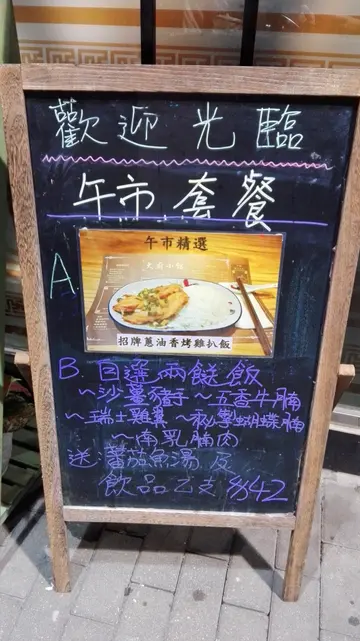 歡迎光臨
午市套餐
A.
午市精選
招牌蔥油香烤雞扒飯
B. 自選兩餸飯
~沙薑豬手 ~五香牛腩
~瑞士雞翼 ~秘製蝴蝶腩
~南乳腩肉
送 蕃茄魚湯 及
飲品乙支 $42